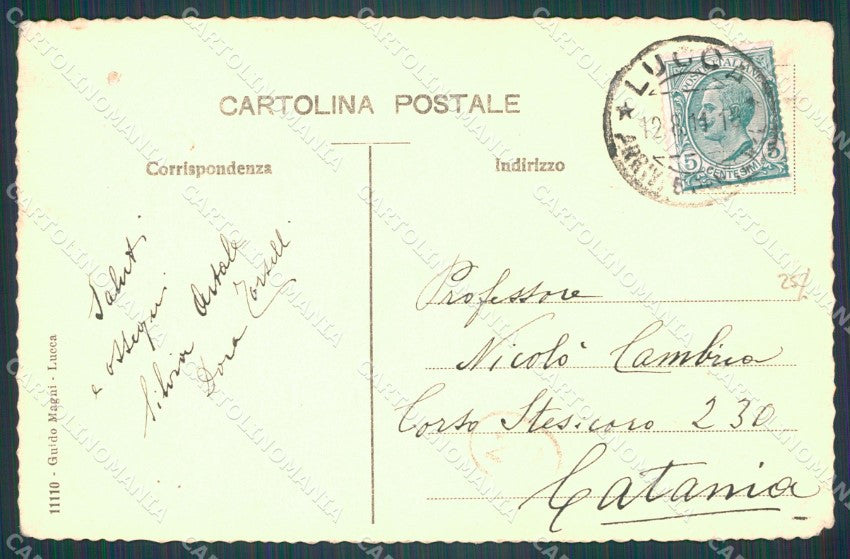 CARTOLINA POSTALE
Corrispondenza
Indirizzo
LUCCA
12.8.11
ARRIVI
POSTE ITALIANE
5 CENTESIMI 5
Saluti
e ossequi
Silvia
Dora
Professore
Nicolò Cambria
Corso Stesicoro 230
Catania
25/
11110 - Guido Magni - Lucca
CARTOLINOMANIA